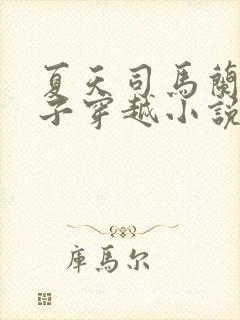 夏天司馬蘭
子穿越小說
庫馬尔